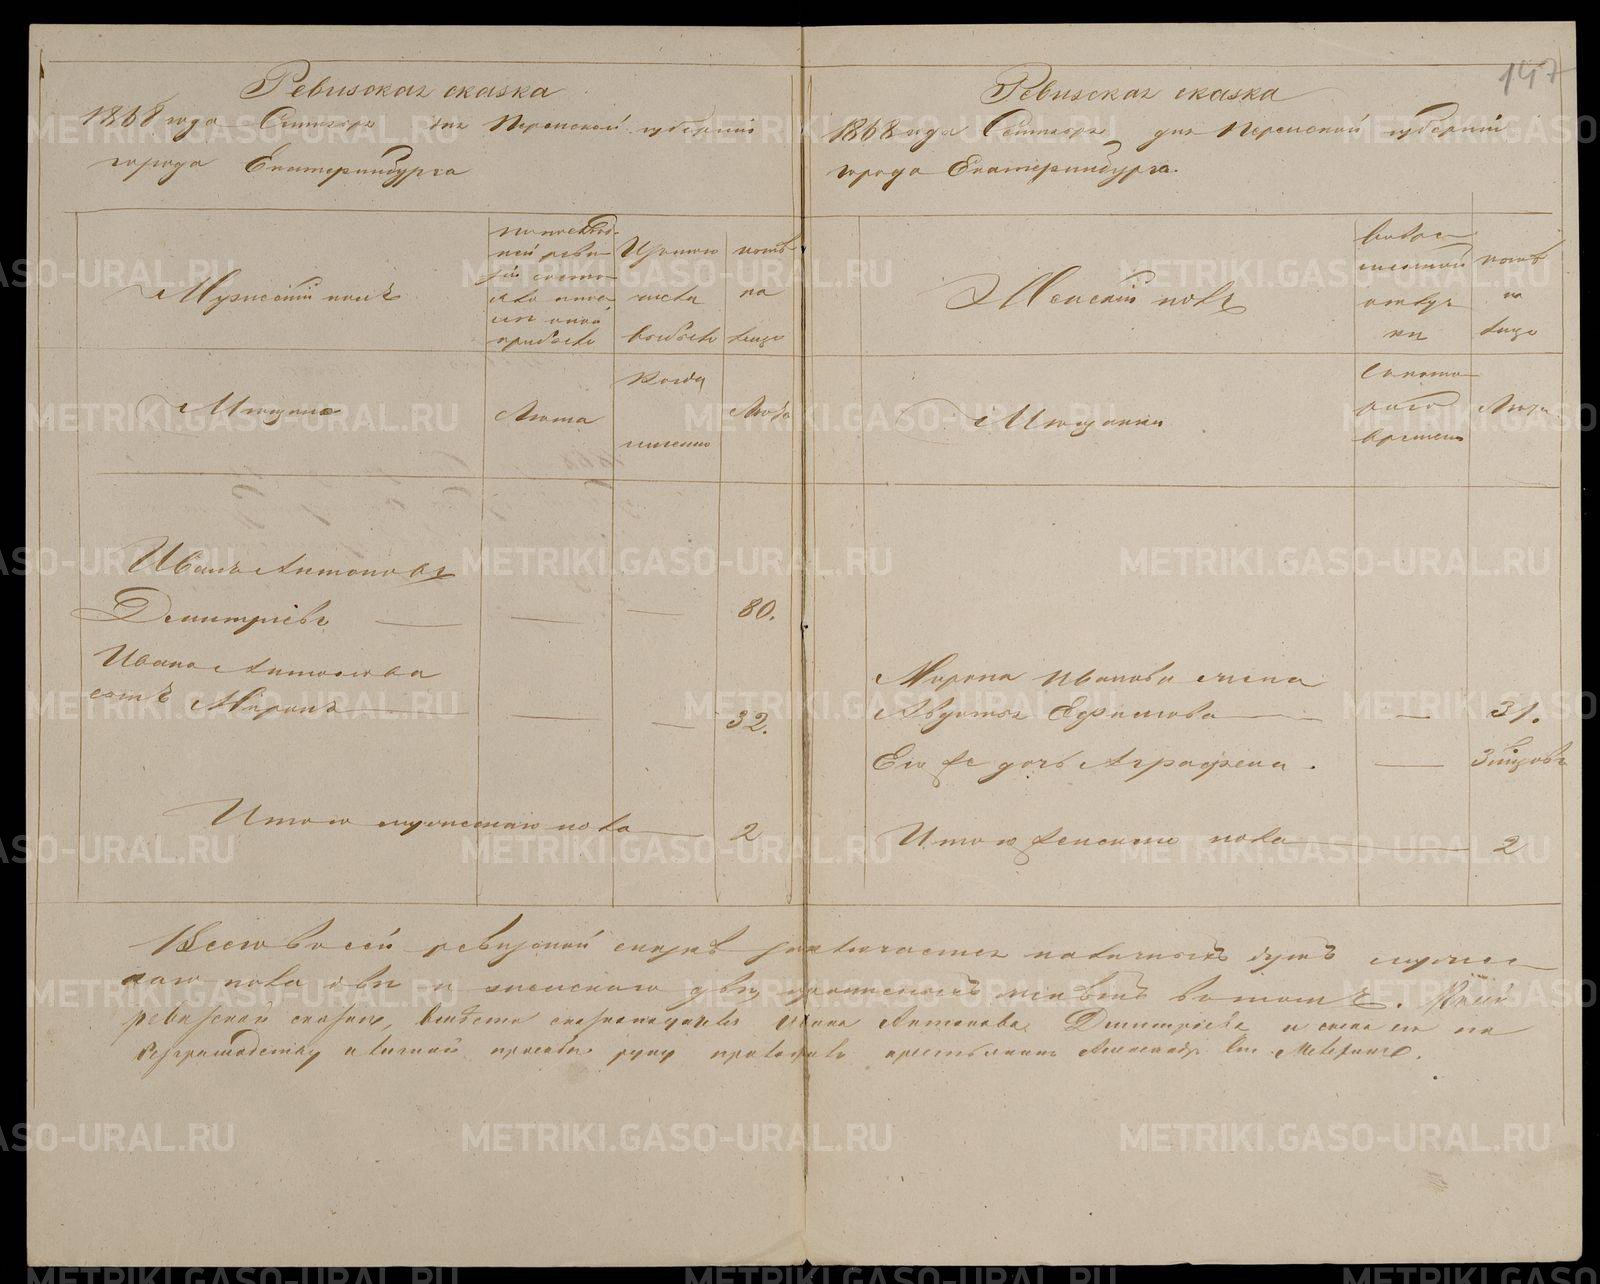 147
Ревизская сказка
1868 года Сентября дня Пермской губернiи
города Екатеринбурга
Мужескiй полъ
По послѣд-
ней реви-
зiи состо-
яло и по-
слѣ оной
прибыло
Изъ того
числа
выбыло
нынѣ
на
лицо
Мѣщане
Лѣта
Когда
именно
Лѣта
Иванъ Антоновъ
Дмитрiевъ — — — 80.
Ивана Антонова
сынъ Миронъ — — — 32.
Итого мужескаго пола — 2
Ревизская сказка
1868 года Сентября дня Пермской губернiи
города Екатеринбурга.
Женскiй полъ
во вре-
менной
отлуч-
кѣ
нынѣ
на
лицо
Мѣщанки
Съ кото-
раго
времени
Лѣта
Мирона Иванова жена
Авдотья Ефимова — — 31.
Его же дочь Аграфена. — 3 мѣсяцовъ
Итого женскаго пола — 2
Всего въ сей ревизской сказкѣ заключается наличныхъ душъ мужес-
каго пола двѣ и женскаго двѣ въ томъ. К сей
ревизской сказкѣ, вмѣсто сказкоподателя Ивана Антонова Дмитрiева и сына его по
безграмотству и личной просьбѣ руку приложилъ крестьянинъ Александръ
METRIKI.GASO-URAL.RU